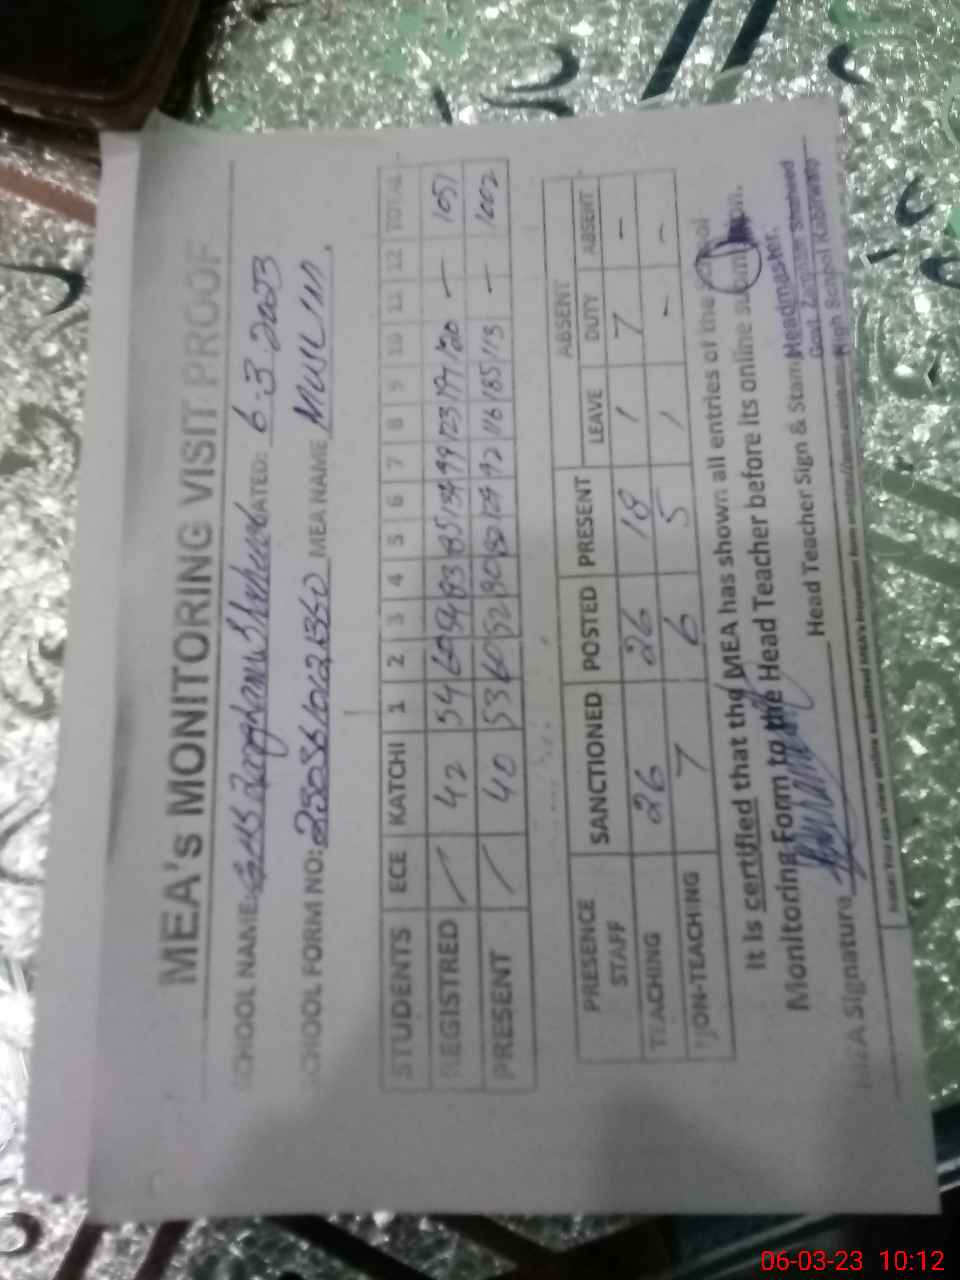 MEA's MONITORING VISIT PROOF
SCHOOL NAME DATED: 6-3-2023
SCHOOL FORM NO: MEA NAME
STUDENTS ECE KATCHI 1 2 3 4 5 6 7 8 9 10 11 12 TOTAL
REGISTRED / 42 54 60 54 83 85 134 99 123 — 1051
PRESENT / 40 53 60 52 80 92 116 185 113 — 1002
PRESENCE SANCTIONED POSTED PRESENT ABSENT
STAFF LEAVE DUTY ABSENT
TEACHING 26 26 18 1 7 –
NON-TEACHING 7 6 5 1 – –
It is certified that the MEA has shown all entries of the
Monitoring Form to the Head Teacher before its online
MEA Signature Head Teacher Sign & Stamp Headmaster.
High School
Note: You can view online submitted MEA's inspection form
06-03-23 10:12